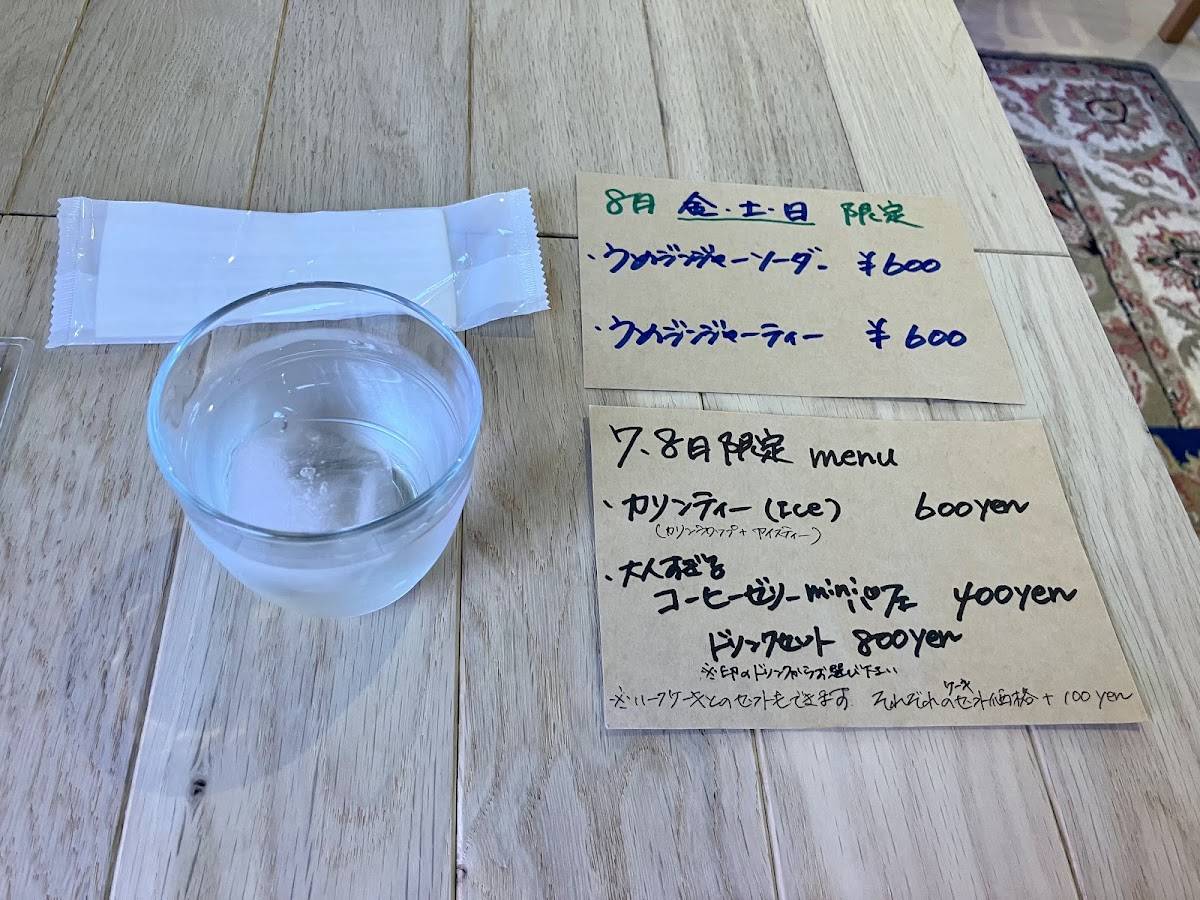 8月 金・土・日 限定
・ウメジンジャーソーダー ¥600
・ウメジンジャーティー ¥600
7、8月限定 menu
・カリンティー (ICE) 600yen
(カリンシロップ+アイスティー)
・大人すぎる
コーヒーゼリー miniパフェ 400yen
ドリンクセット 800yen
※印のドリンクからお選び下さい
※ハーフケーキとのセットもできます それぞれのケーキセット価格+100yen